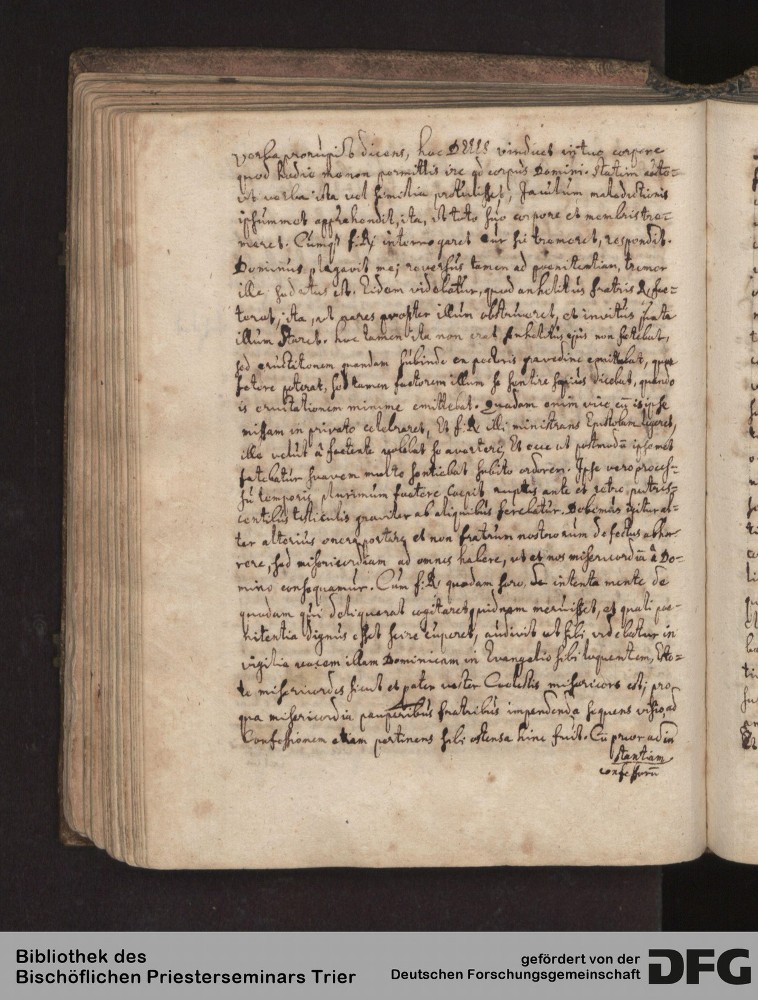 verba prorupit dicens, hoc DEUS vindicet in tuo corpore
quod hodie me non permittis ire ad corpus Domini. Statim
ut verba ista vel similia protulisset, Jaculum maledictionis
ipsummet apprehendit, ita, ut toto suo corpore et membris tre=
meret. Cumq f: R: interrogaret cur sic tremeret, respondit.
Dominus plagavit me; reversus tamen ad poenitentiam, tremor
ille sedatus est. Eidem videbatur, quod anhelitus fratris R foe=
teret, ita, ut nares propter illum obstrueret, et invitus juxta
illum staret. hoc tamen ita non erat Anhelitus ejus non foetebat,
sed eructationem quandam subinde ex pectoris gravedine emittebat, quae
fetere poterat, sed tamen foetorem illum se sentire saepius dicebat, quando
is eructationem minime emittebat. Quadam enim vice cū is ipse
missam in privato celebraret, Et f: R illi ministrans Epistolam legeret,
ille velut à foetente volebat se avertere, Et ecce ut postmodū ipsemet
fatebatur suavem multo sentiebat subito odorem. Ipse vero proces=
su temporis plurimum foetere coepit ruptus ante et retro, putres=
centibus testiculis graviter ab aliquibus ferebatur. Debemus igitur al=
ter alterius onera portare et non fratrum nostrorum defectus abhor=
rere, sed misericordiam ad omnes habere, ut et nos misericordiā à Do=
mino consequamur. Cum f: R quadam intenta mente de
quodam qui deliquerat cogitaret quidnam meruisset, et quali poe=
nitentia dignus esset scire cuperet, audivit ut sibi videbatur in
vigilia vocem illam Dominicam in Evangelio sibi loquentem, Esto=
te misericordes sicut et pater vester Coelestis misericors est; pro
qua misericordia pauperibus fratribus impendenda sequens visio, ad
Confessionem etiam pertinens sibi ostensa hinc fuit. Cū prior ad in
stantiam
confessorū
Bibliothek des
Bischöflichen Priesterseminars Trier
gefördert von der
Deutschen Forschungsgemeinschaft
DFG